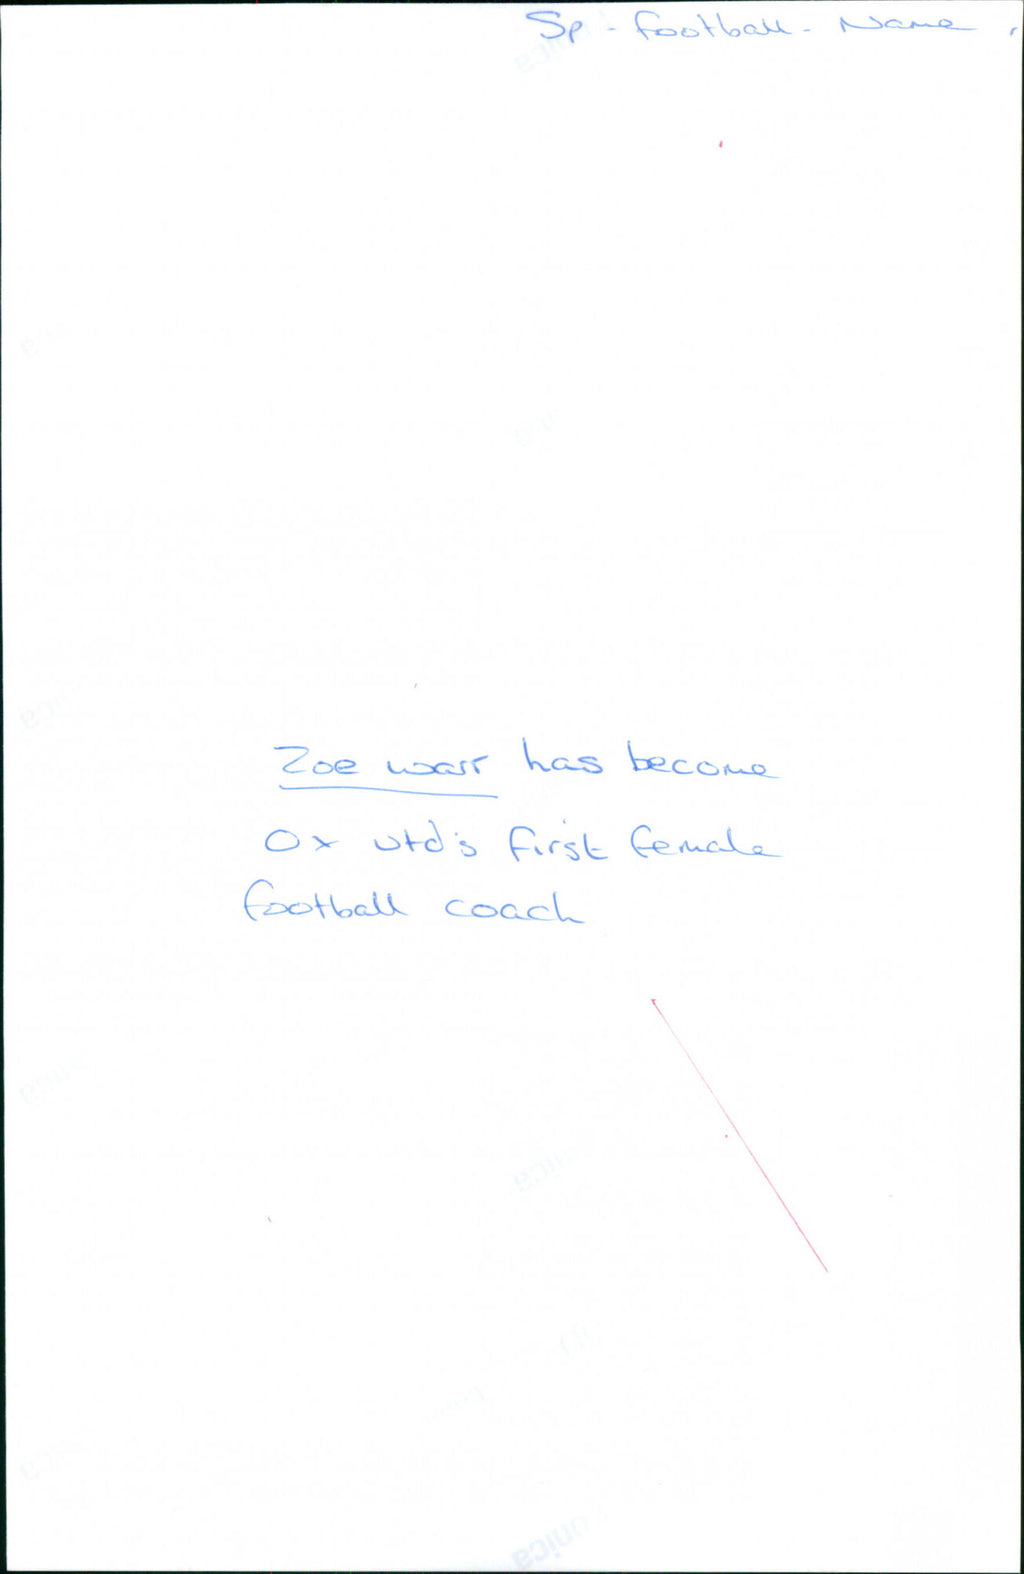 Sp - Football - Name
Zoe Warr has become
Ox Utd's first female
football coach